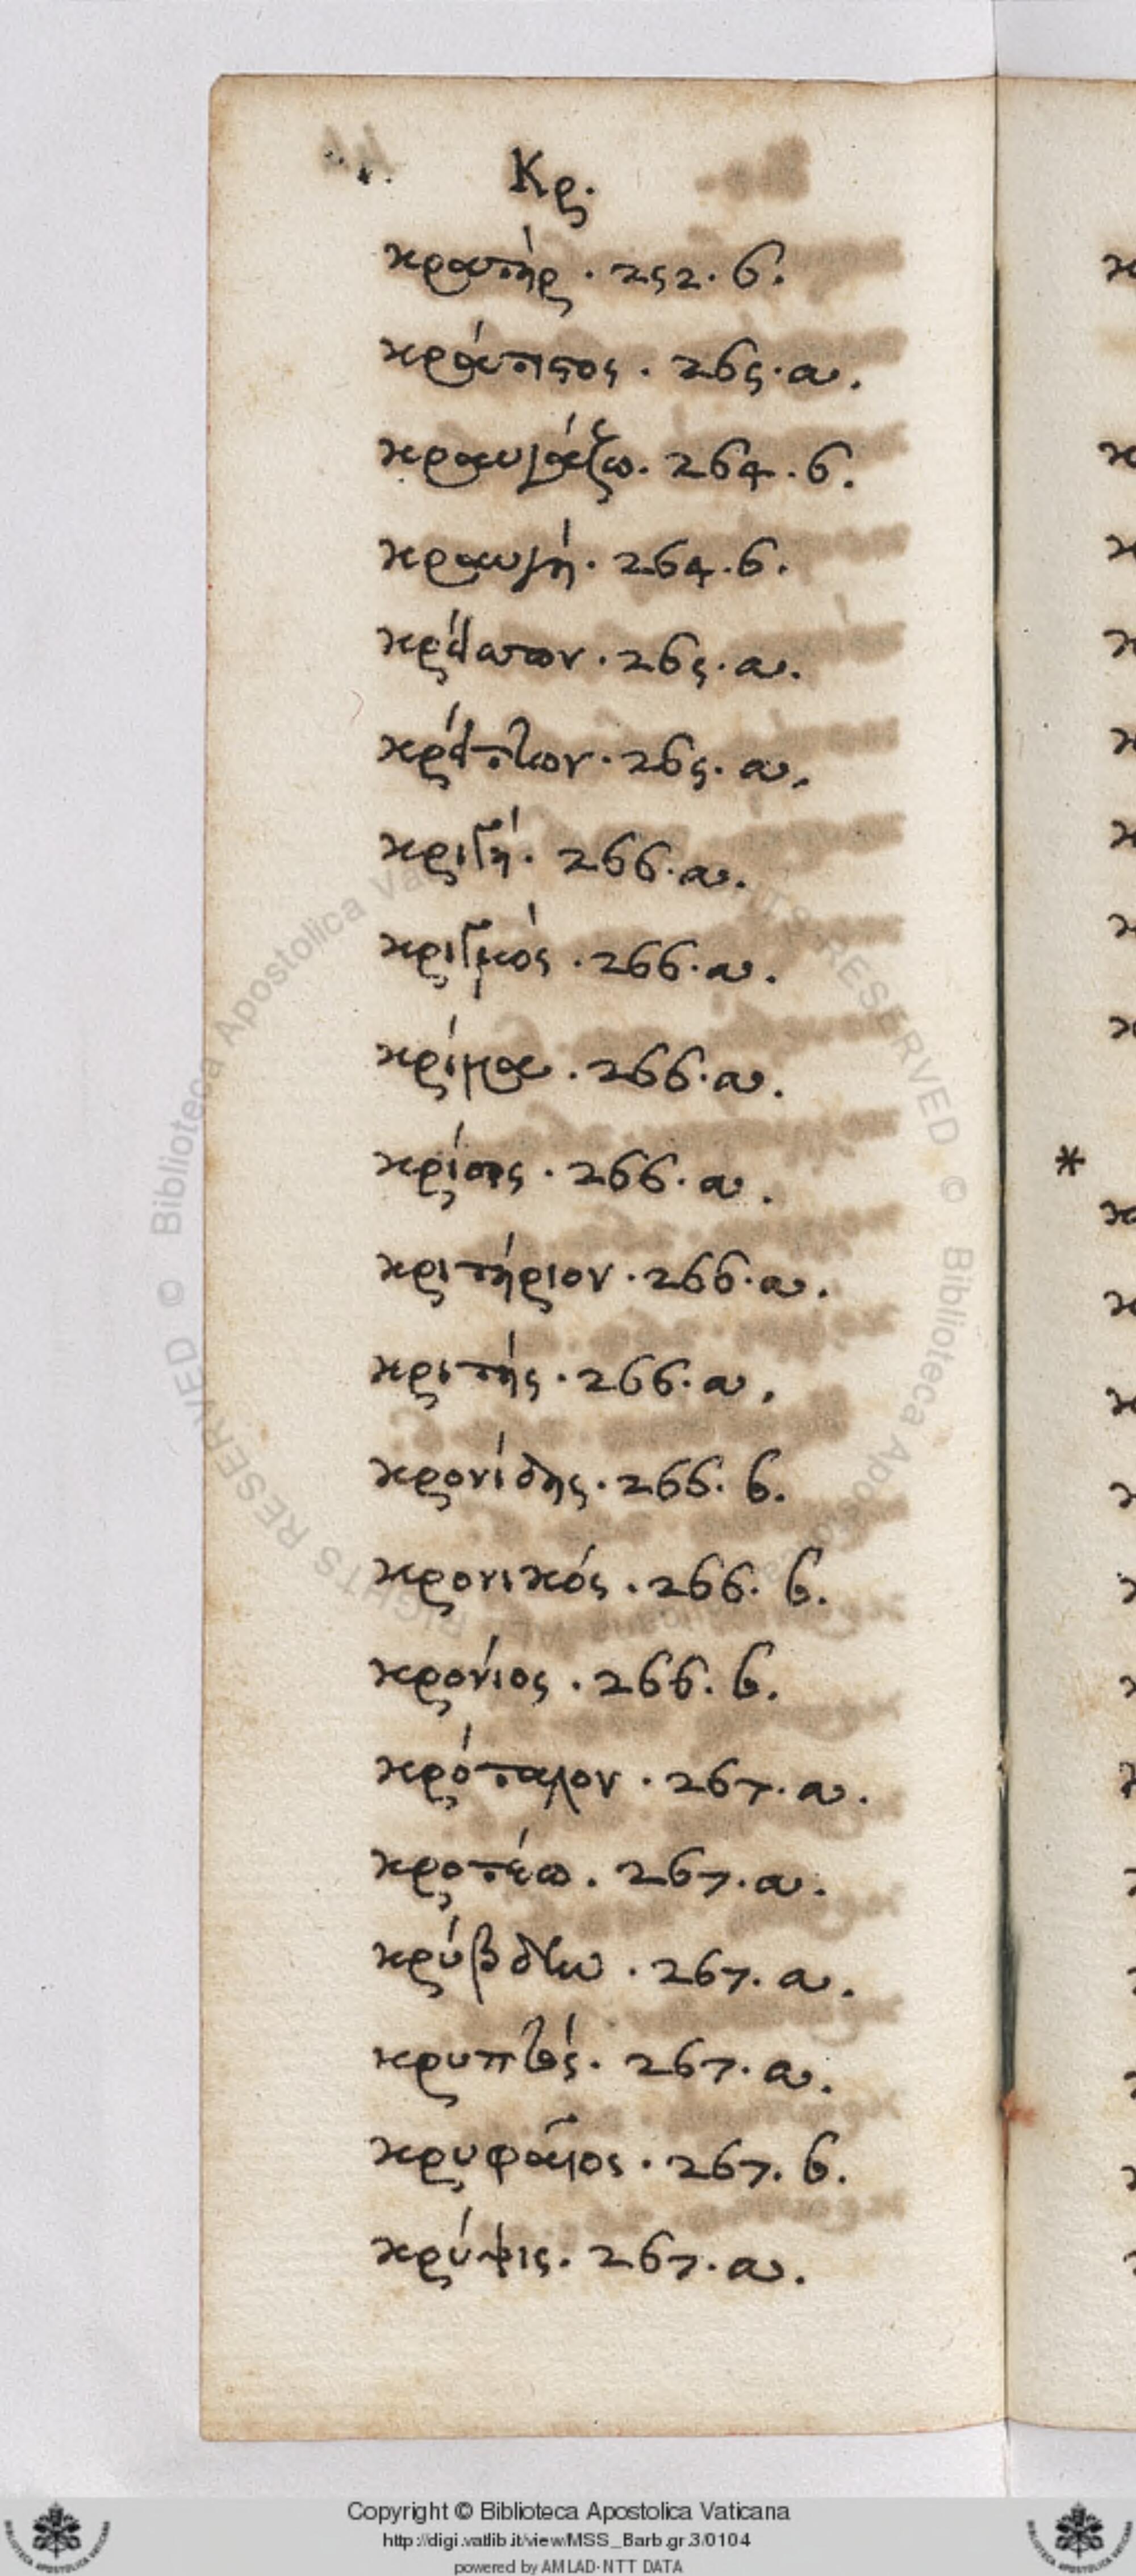 Κρ.
κρατήρ · 252 · b.
κράτιστος · 265 · a.
κραυγάζω · 264 · b.
κραυγή · 264 · b.
κρείσσων · 265 · a.
κρείττων · 265 · a.
κριθή · 266 · a.
κριθμός · 266 · a.
κρίμα · 266 · a.
κρίσις · 266 · a.
κριτήριον · 266 · a.
κριτής · 266 · a.
κρονίδης · 266 · b.
κρονικός · 266 · b.
κρόνιος · 266 · b.
κρόταλον · 267 · a.
κροτέω · 267 · a.
κρύβδην · 267 · a.
κρυπτός · 267 · a.
κρυφαῖος · 267 · b.
κρύψις · 267 · a.
*
Copyright © Biblioteca Apostolica Vaticana
http://digi.vatlib.it/view/MSS_Barb.gr.3/0104
powered by AMLAD-NTT DATA